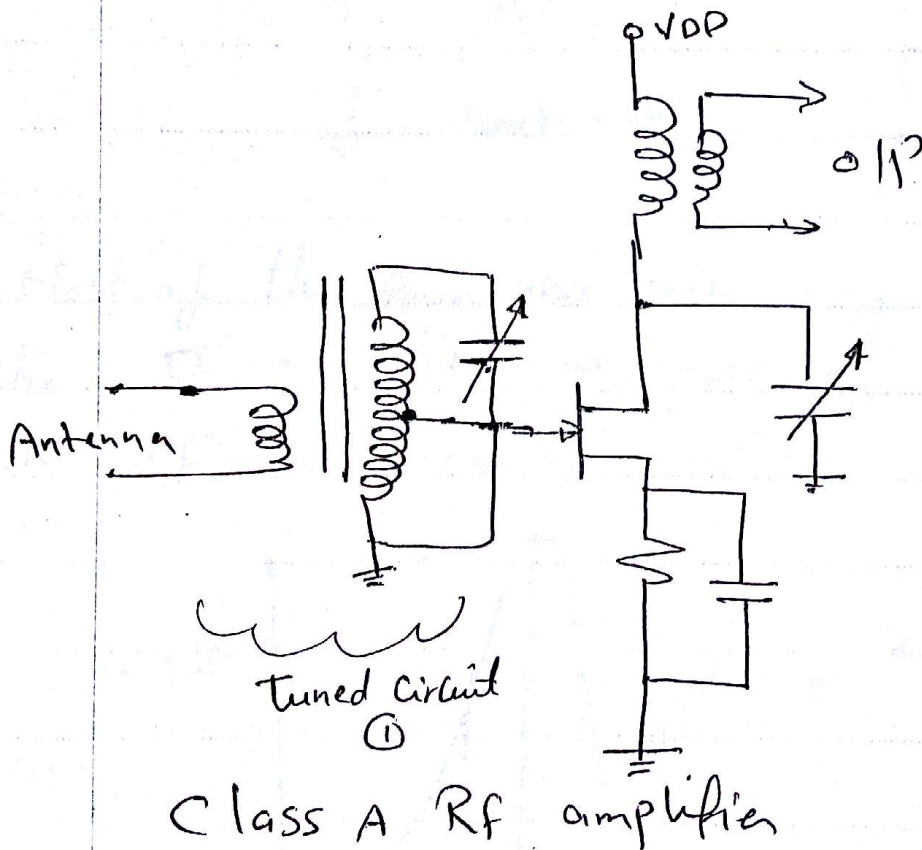 VDD
O/P
Antenna
Tuned Circuit
①
Class A Rf amplifier